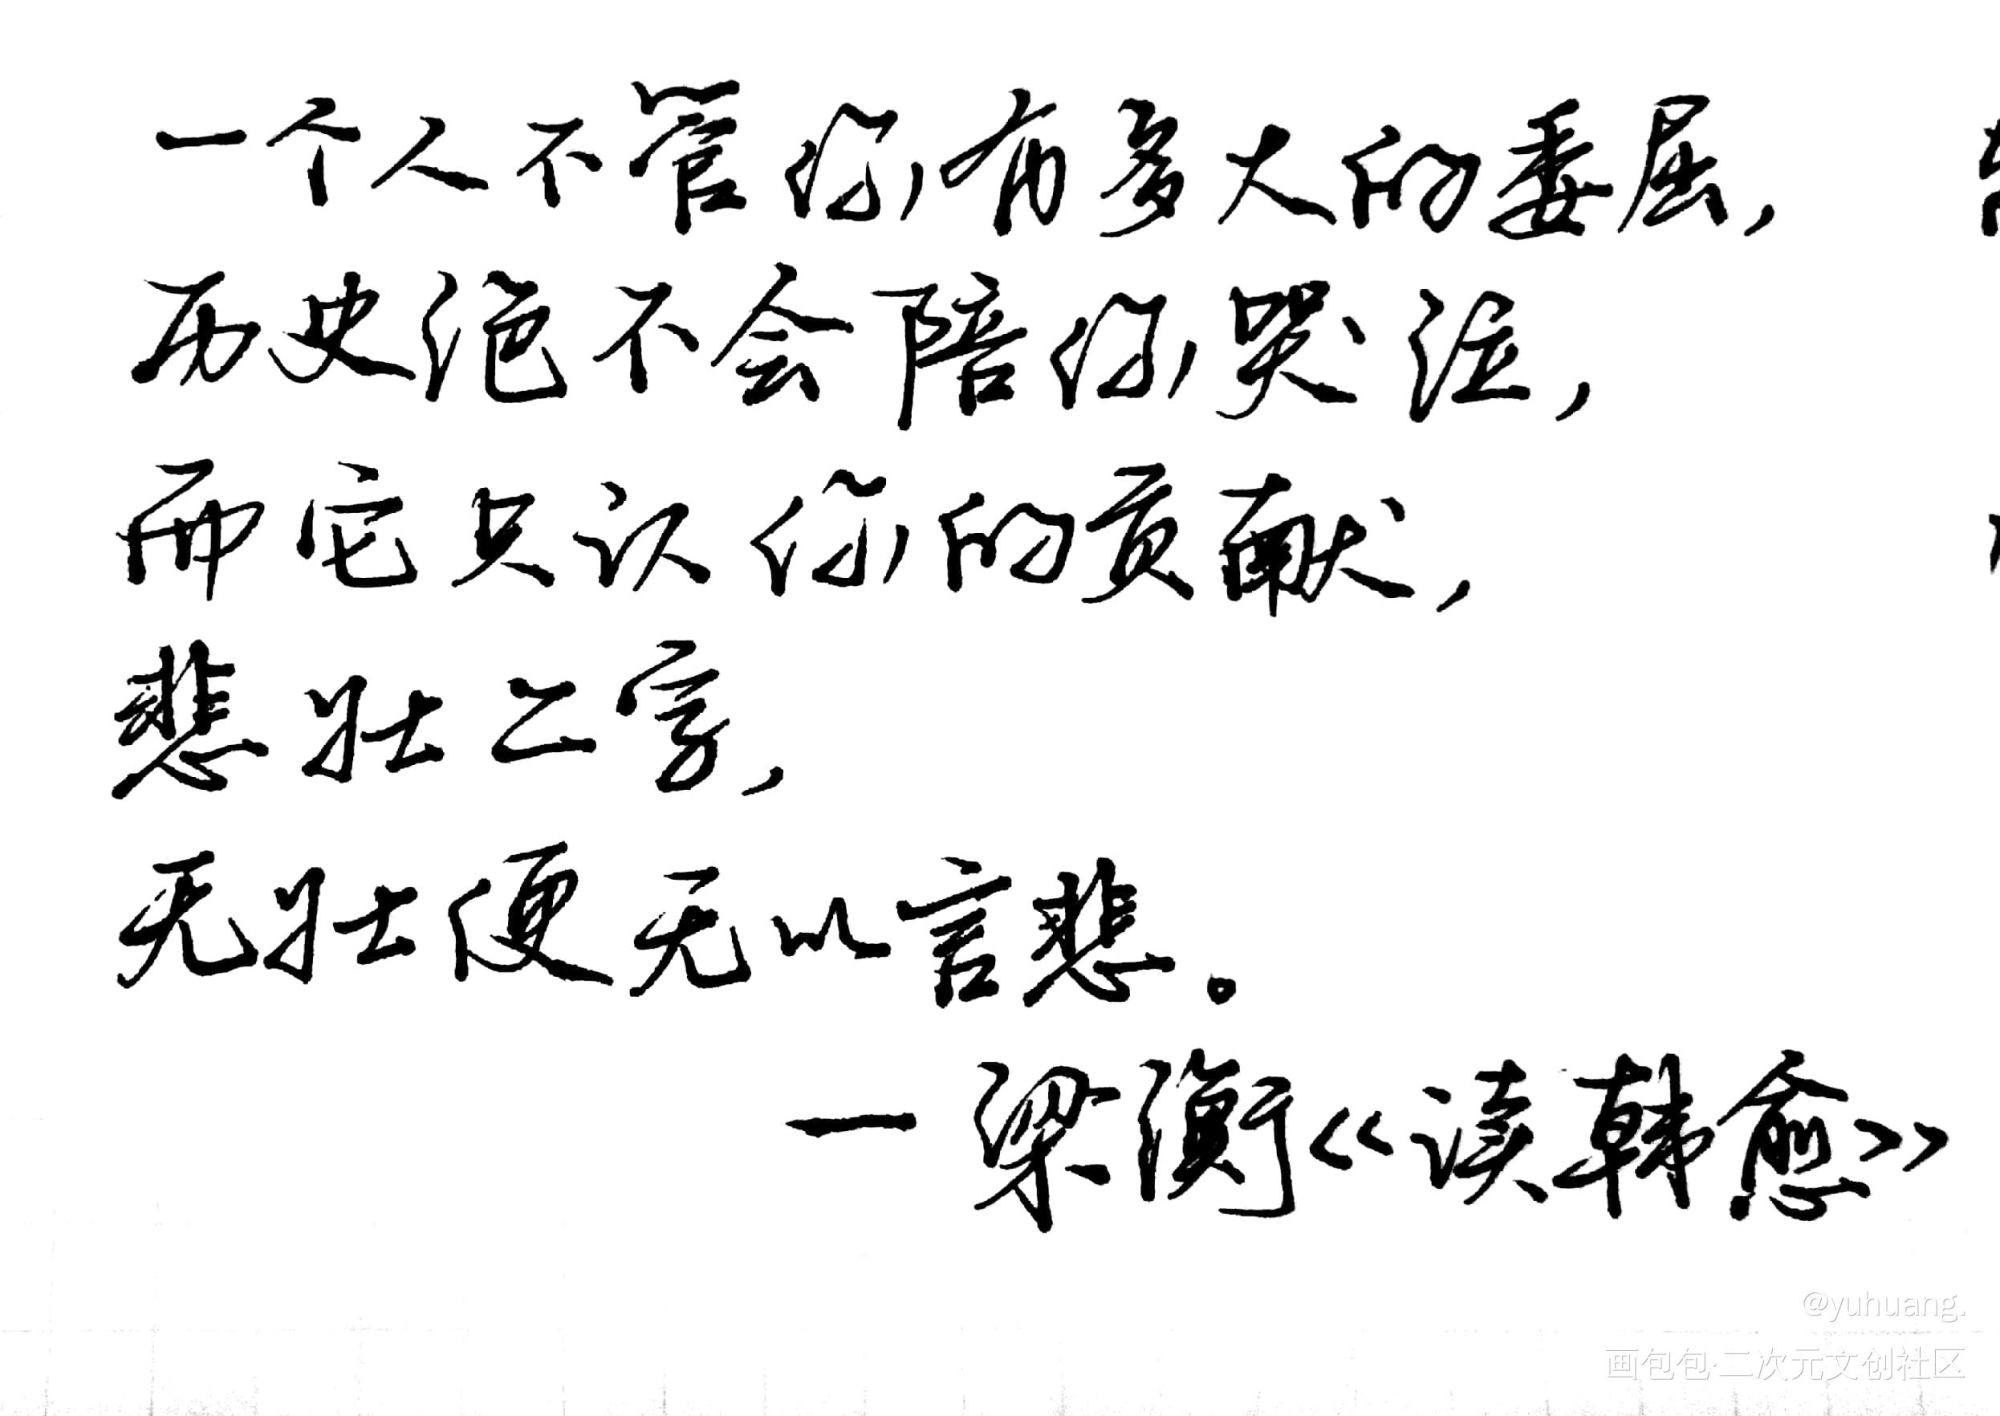 一个人不管你有多大的委屈,
历史绝不会陪你哭泣,
而它只认你的贡献,
悲壮二字,
无壮便无以言悲。
一梁衡《读韩愈》
@yuhuang.
画包包·二次元文创社区